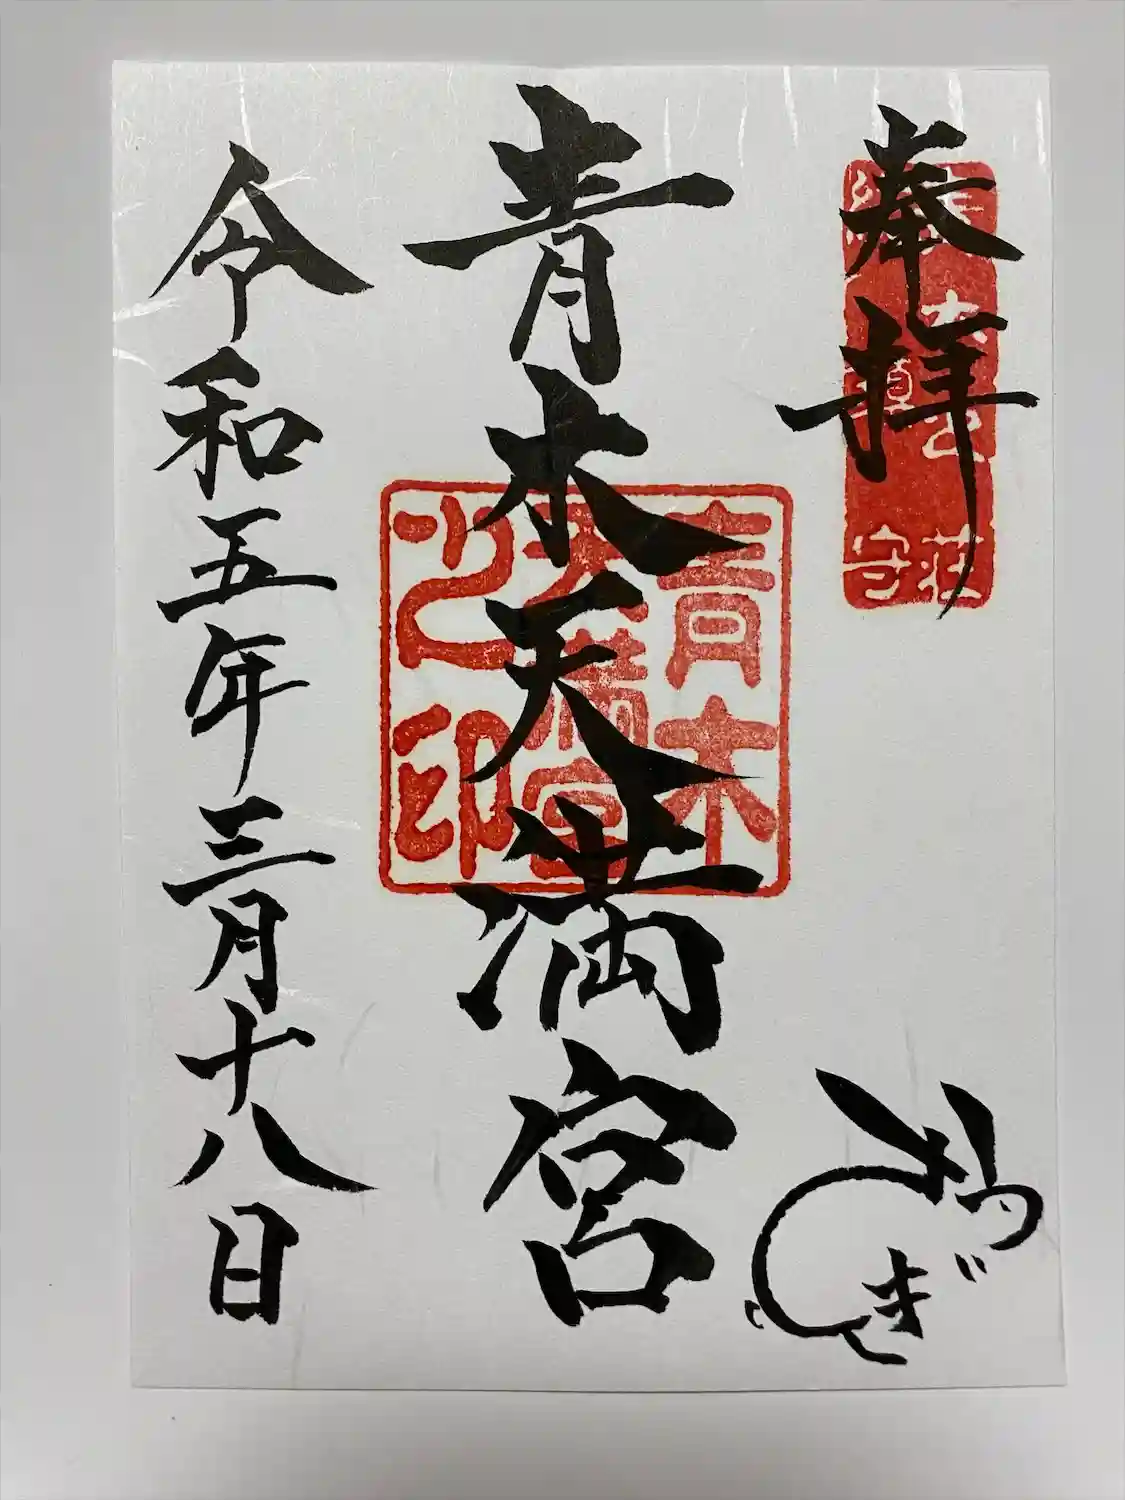 奉拝
青木天満宮
令和五年三月十八日
青木
天満宮
之印
荘
守
うさぎ